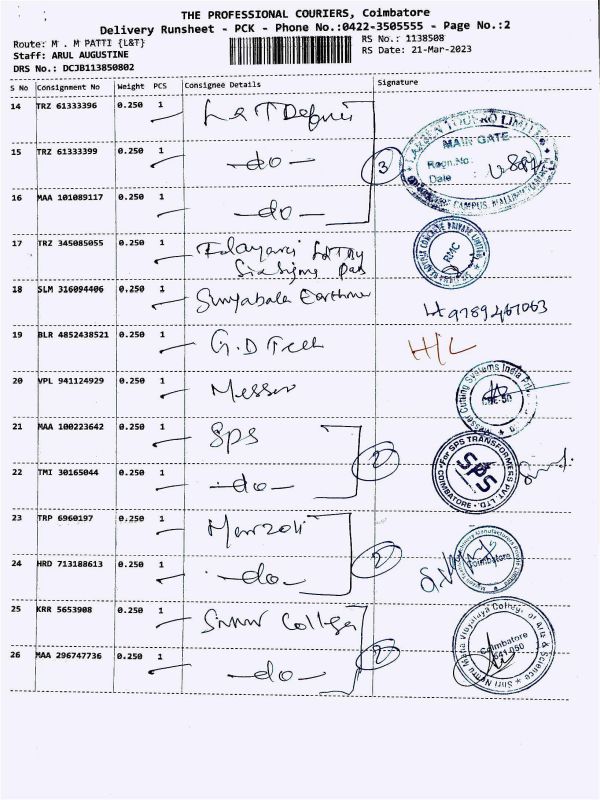 THE PROFESSIONAL COURIERS, Coimbatore
Delivery Runsheet - PCK - Phone No.:0422-3505555 - Page No.:2
Route: M . M PATTI {L&T}
RS No.: 1138508
Staff: ARUL AUGUSTINE
RS Date: 21-Mar-2023
DRS No.: DCJB113850802
S No Consignment No Weight PCS Consignee Details Signature
14 TRZ 61333396 0.250 1 L&T Defence
MAIN GATE
Regn.No.
Date :
15 TRZ 61333399 0.250 1 -do- 3
16 MAA 101089117 0.250 1 -do-
17 TRZ 345085055 0.250 1 RMC
18 SLM 316094406 0.250 1 Suryabala
19 BLR 4852438521 0.250 1 G.D Tech H/L
20 VPL 941124929 0.250 1 Messer
Messer Cutting Systems India
21 MAA 100223642 0.250 1 SPS
For SPS TRANSFORMERS PVT. LTD.
SPS
COIMBATORE
22 TMI 30165044 0.250 1 -do- 2
23 TRP 6960197 0.250 1 Marzoli
24 HRD 713188613 0.250 1 -do- 2
Coimbatore
25 KRR 5653908 0.250 1 SNMV College
Shri Nehru Maha Vidyalaya College of Arts & Science
Coimbatore
641 050
26 MAA 296747736 0.250 1 -do- 2